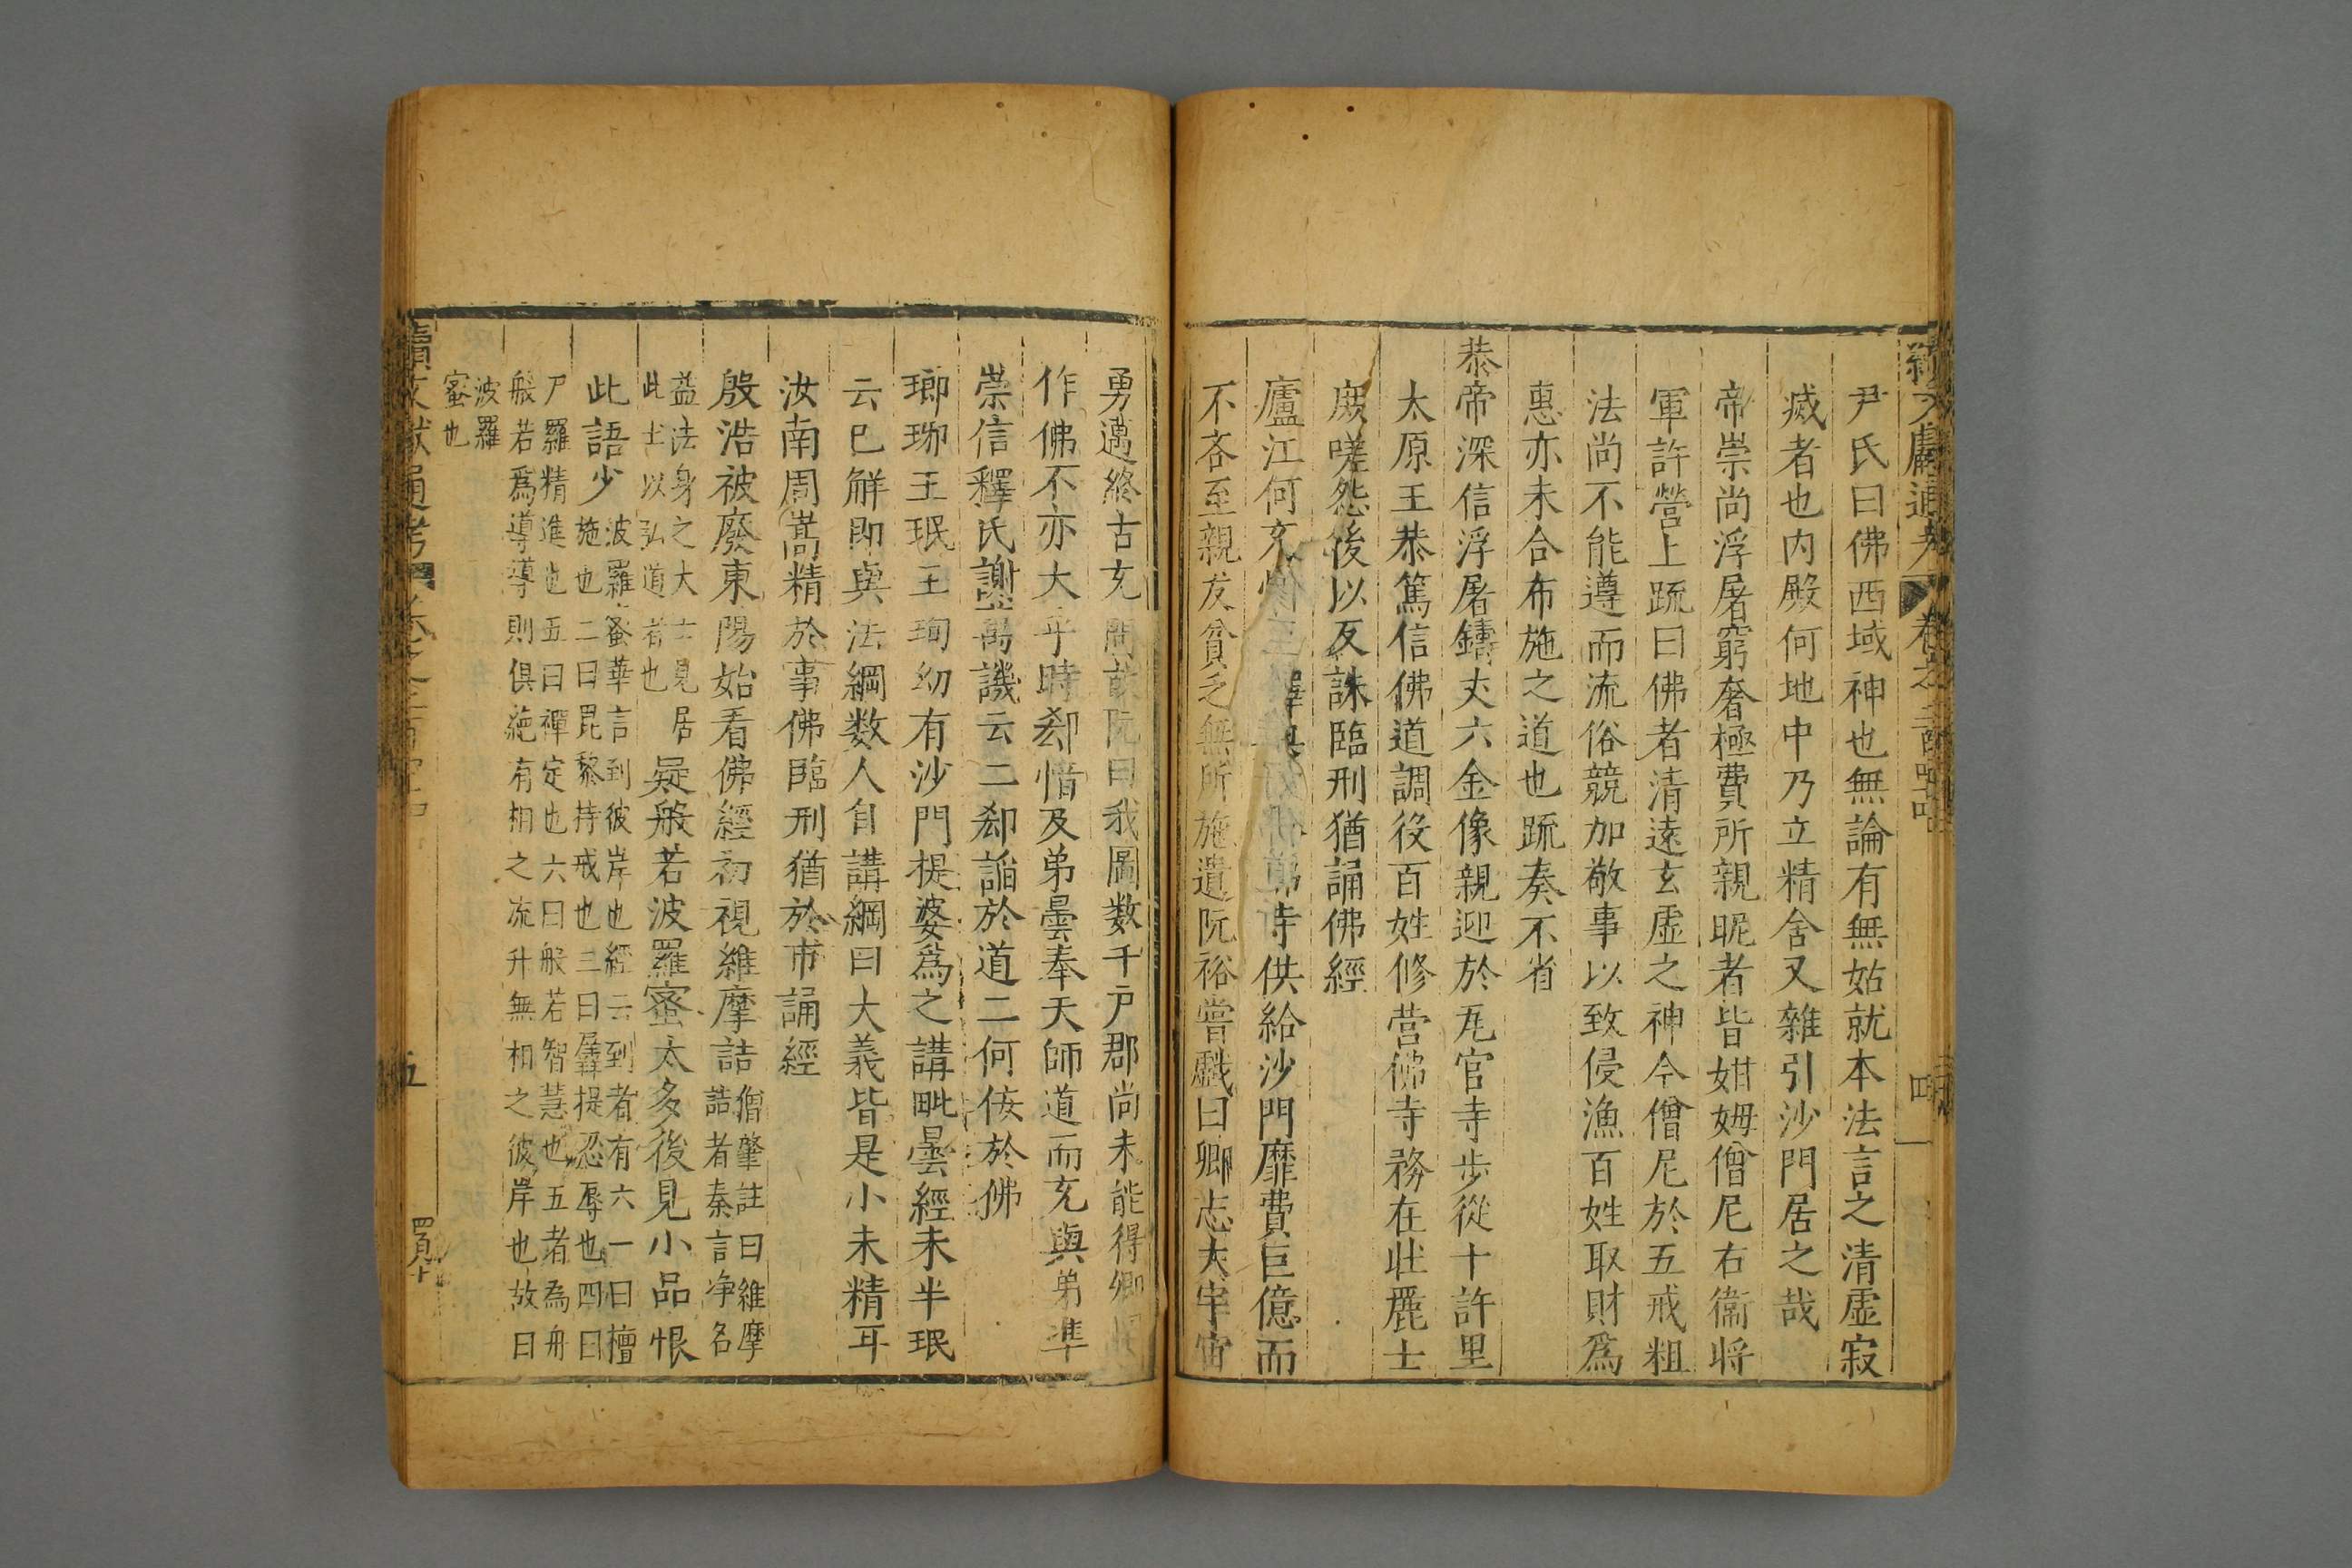 尹氏曰佛西域神也無論有無姑就本法言之清虛寂
滅者也内殿何地中乃立精舍又雜引沙門居之哉
帝崇尚浮屠窮奢極費所親昵者皆姏姆僧尼右衞将
軍許營上疏曰佛者清遠玄虛之神今僧尼於五戒粗
法尚不能遵而流俗競加敬事以致侵漁百姓取財爲
惠亦未合布施之道也疏奏不省
恭帝深信浮屠鑄丈六金像親迎於瓦官寺步從十許里
太原王恭篤信佛道調役百姓修营佛寺務在壯麗士
庶嗟怨後以反誅臨刑猶誦佛經
廬江何充 寺供給沙門靡費巨億而
不吝至親友貧乏無所施遺阮裕嘗戲曰卿志大宇宙
勇邁終古充問故阮曰我圖数千戸郡尚未能得卿
作佛不亦大乎時郄愔及弟曇奉天師道而充與弟準
崇信釋氏謝萬譏云二郄諂於道二何佞於佛
瑯琊王珉王珣幼有沙門提婆爲之講毗曇經未半珉
云已解即與法綱数人自講綱曰大義皆是小未精耳
汝南周嵩精於事佛臨刑猶於市誦經
殷浩被廢東陽始看佛經初視維摩詰僧肇註曰維摩
詰者秦言净名
益法身之大士見居
此土以弘道者也疑般若波羅蜜太多後見小品恨
此語少波羅蜜華言到彼岸也經云到者有六一曰檀
施也二曰毘黎持戒也三曰羼提忍辱也四曰
尸羅精進也五曰禪定也六曰般若智慧也五者為舟
般若爲導導則俱絶有相之流升無相之彼岸也故曰
波羅
蜜也
續文獻通考
五
四